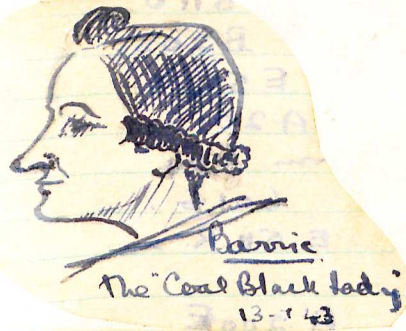 Barrie
The "Coal Black Lady"
13-1-43